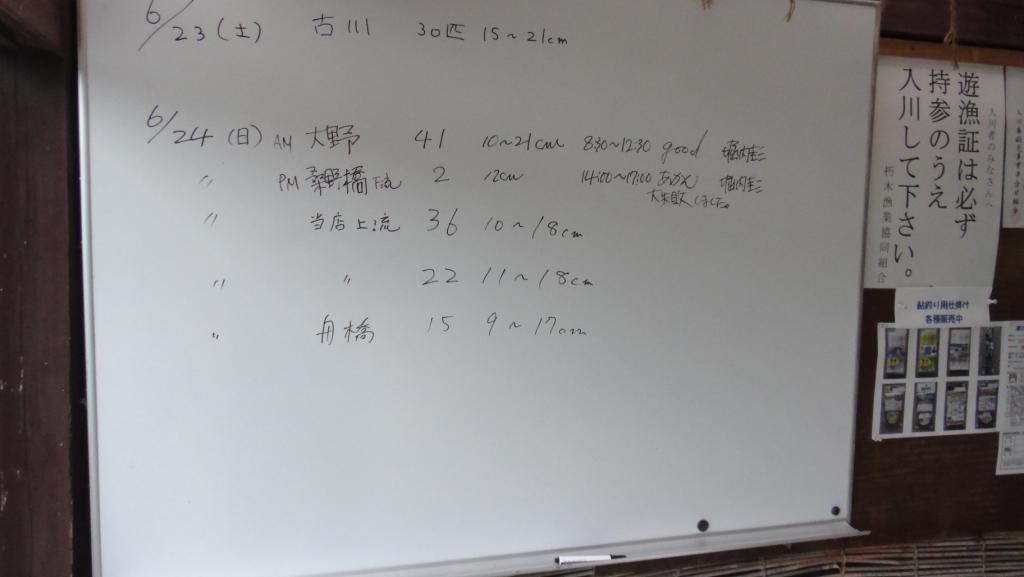 6/23(土) 古川 30匹 15~21cm
6/24(日) AM 大野 41 10~21cm 8:30~12:30 good 堀内圭三
〃 PM 桑野橋下流 2 12cm 14:00~17:00 あかん 堀内圭三
大失敗しました。
〃 当店上流 36 10~18cm
〃 〃 22 11~18cm
〃 舟橋 15 9~17cm
入川者のみなさんへ
遊漁証は必ず
持参のうえ
入川して下さい。
朽木漁業協同組合
鮎釣り用仕掛け
各種販売中